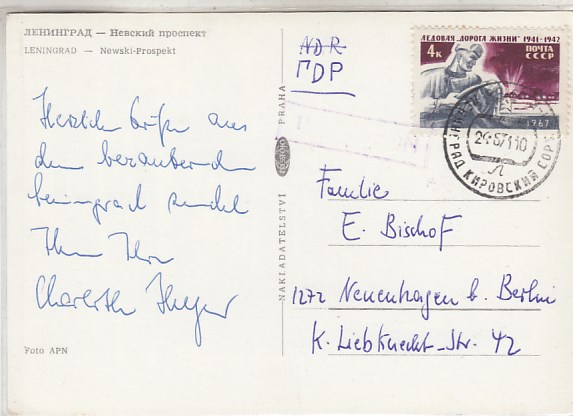 ЛЕНИНГРАД — Невский проспект
LENINGRAD — Newski-Prospekt
Herzliche Grüße aus
dem bezaubernden
Leningrad sendet
Ihnen Ihre
Charlotte
Foto APN
NAKLADATELSTVÍ
PRAHA
NDR
ГДР
ЛЕДОВАЯ „ДОРОГА ЖИЗНИ" 1941-1942
4к
ПОЧТА
СССР
1967
КИРОВСКИЙ
Familie
E. Bischof
1272 Neuenhagen b. Berlin
K. Liebknecht-Str. 42